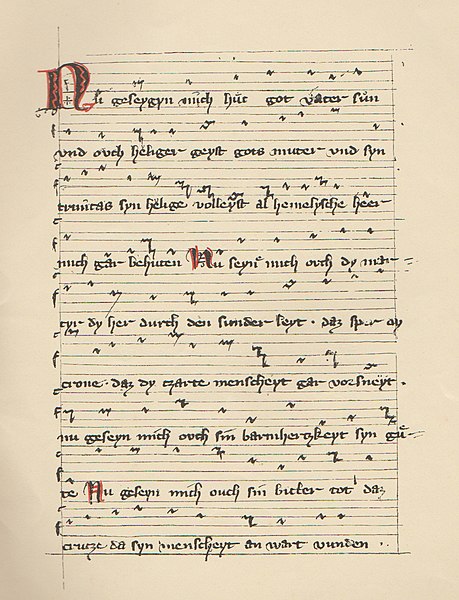 Nu geseygyn mich hut got vater sun
vnd ouch heliger geyst gots muter vnd syn
trinitas syn helige volleyst al hemelysche heer
mich gar behuten Nu seyne mich ouch dy mar=
tyr dy her durch den sunder leyt · daz sper
crone · daz dy czarte menscheyt gar vorsneyt ·
nu geseyn mich ouch sin barmhertzkeyt syn gu=
te Nu geseyn mich ouch sin bitter tot daz
crutze da syn menscheyt an wart vunden ·